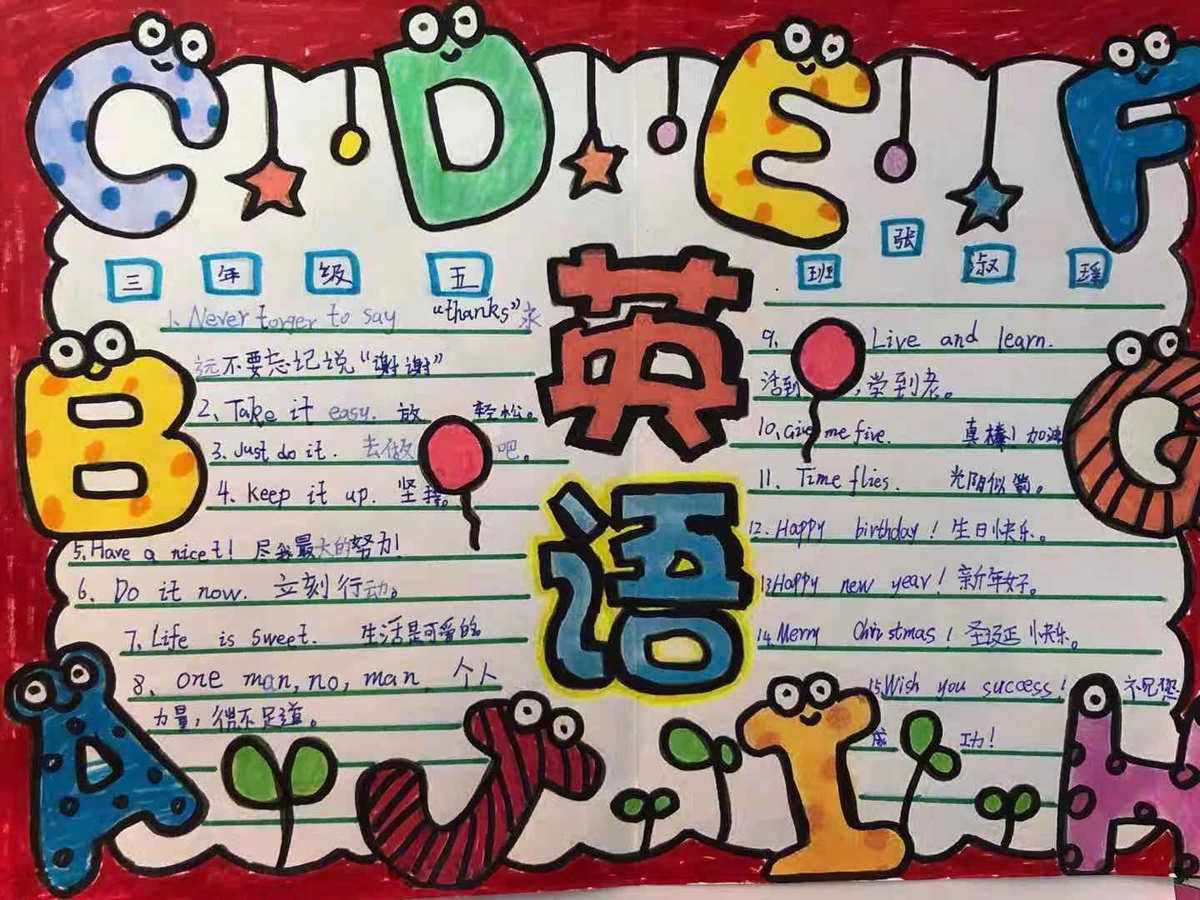 C D E F
三 年 级 五 班 张 淑 瑶
英语
1、Never forger to say "thanks" 永
远不要忘记说"谢谢"
2、Take it easy. 放 轻松。
3、Just do it. 去做 吧。
4、Keep it up. 坚持。
5、Have a nicet! 尽我最大的努力!
6、Do it now. 立刻行动。
7、Life is sweet. 生活是可爱的
8、one man, no, man. 个人
力量,微不足道。
9、Live and learn.
活到 ,学到老。
10、Give me five. 真棒!加油
11、Time flies. 光阴似箭。
12、Happy birthday! 生日快乐。
13、Happy new year! 新年好。
14、Merry Christmas! 圣诞 快乐。
15、Wish you success! 祝您
成 功!
B
G
A J I H